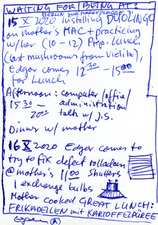 WAITING FOR/BEING AT:
15 X 2020 installing DUOLINGO
on mother's MAC + practicing
w/her (10-12) Prep. Lunch
(last mushrooms from
Edgar comes 12 30 - 15 00
for Lunch.
Afternoon: computer/office
15 30 - administration
20 00 talk w/J.S.
Dinner w/ mother
16 X 2020 Edgar comes to
try to fix defect rolladen
@ mother's 11 00 Shutters
exchange bulbs
Mother cooked GREAT LUNCH:
FRIKADELLEN mit KARTOFFELPÜREE